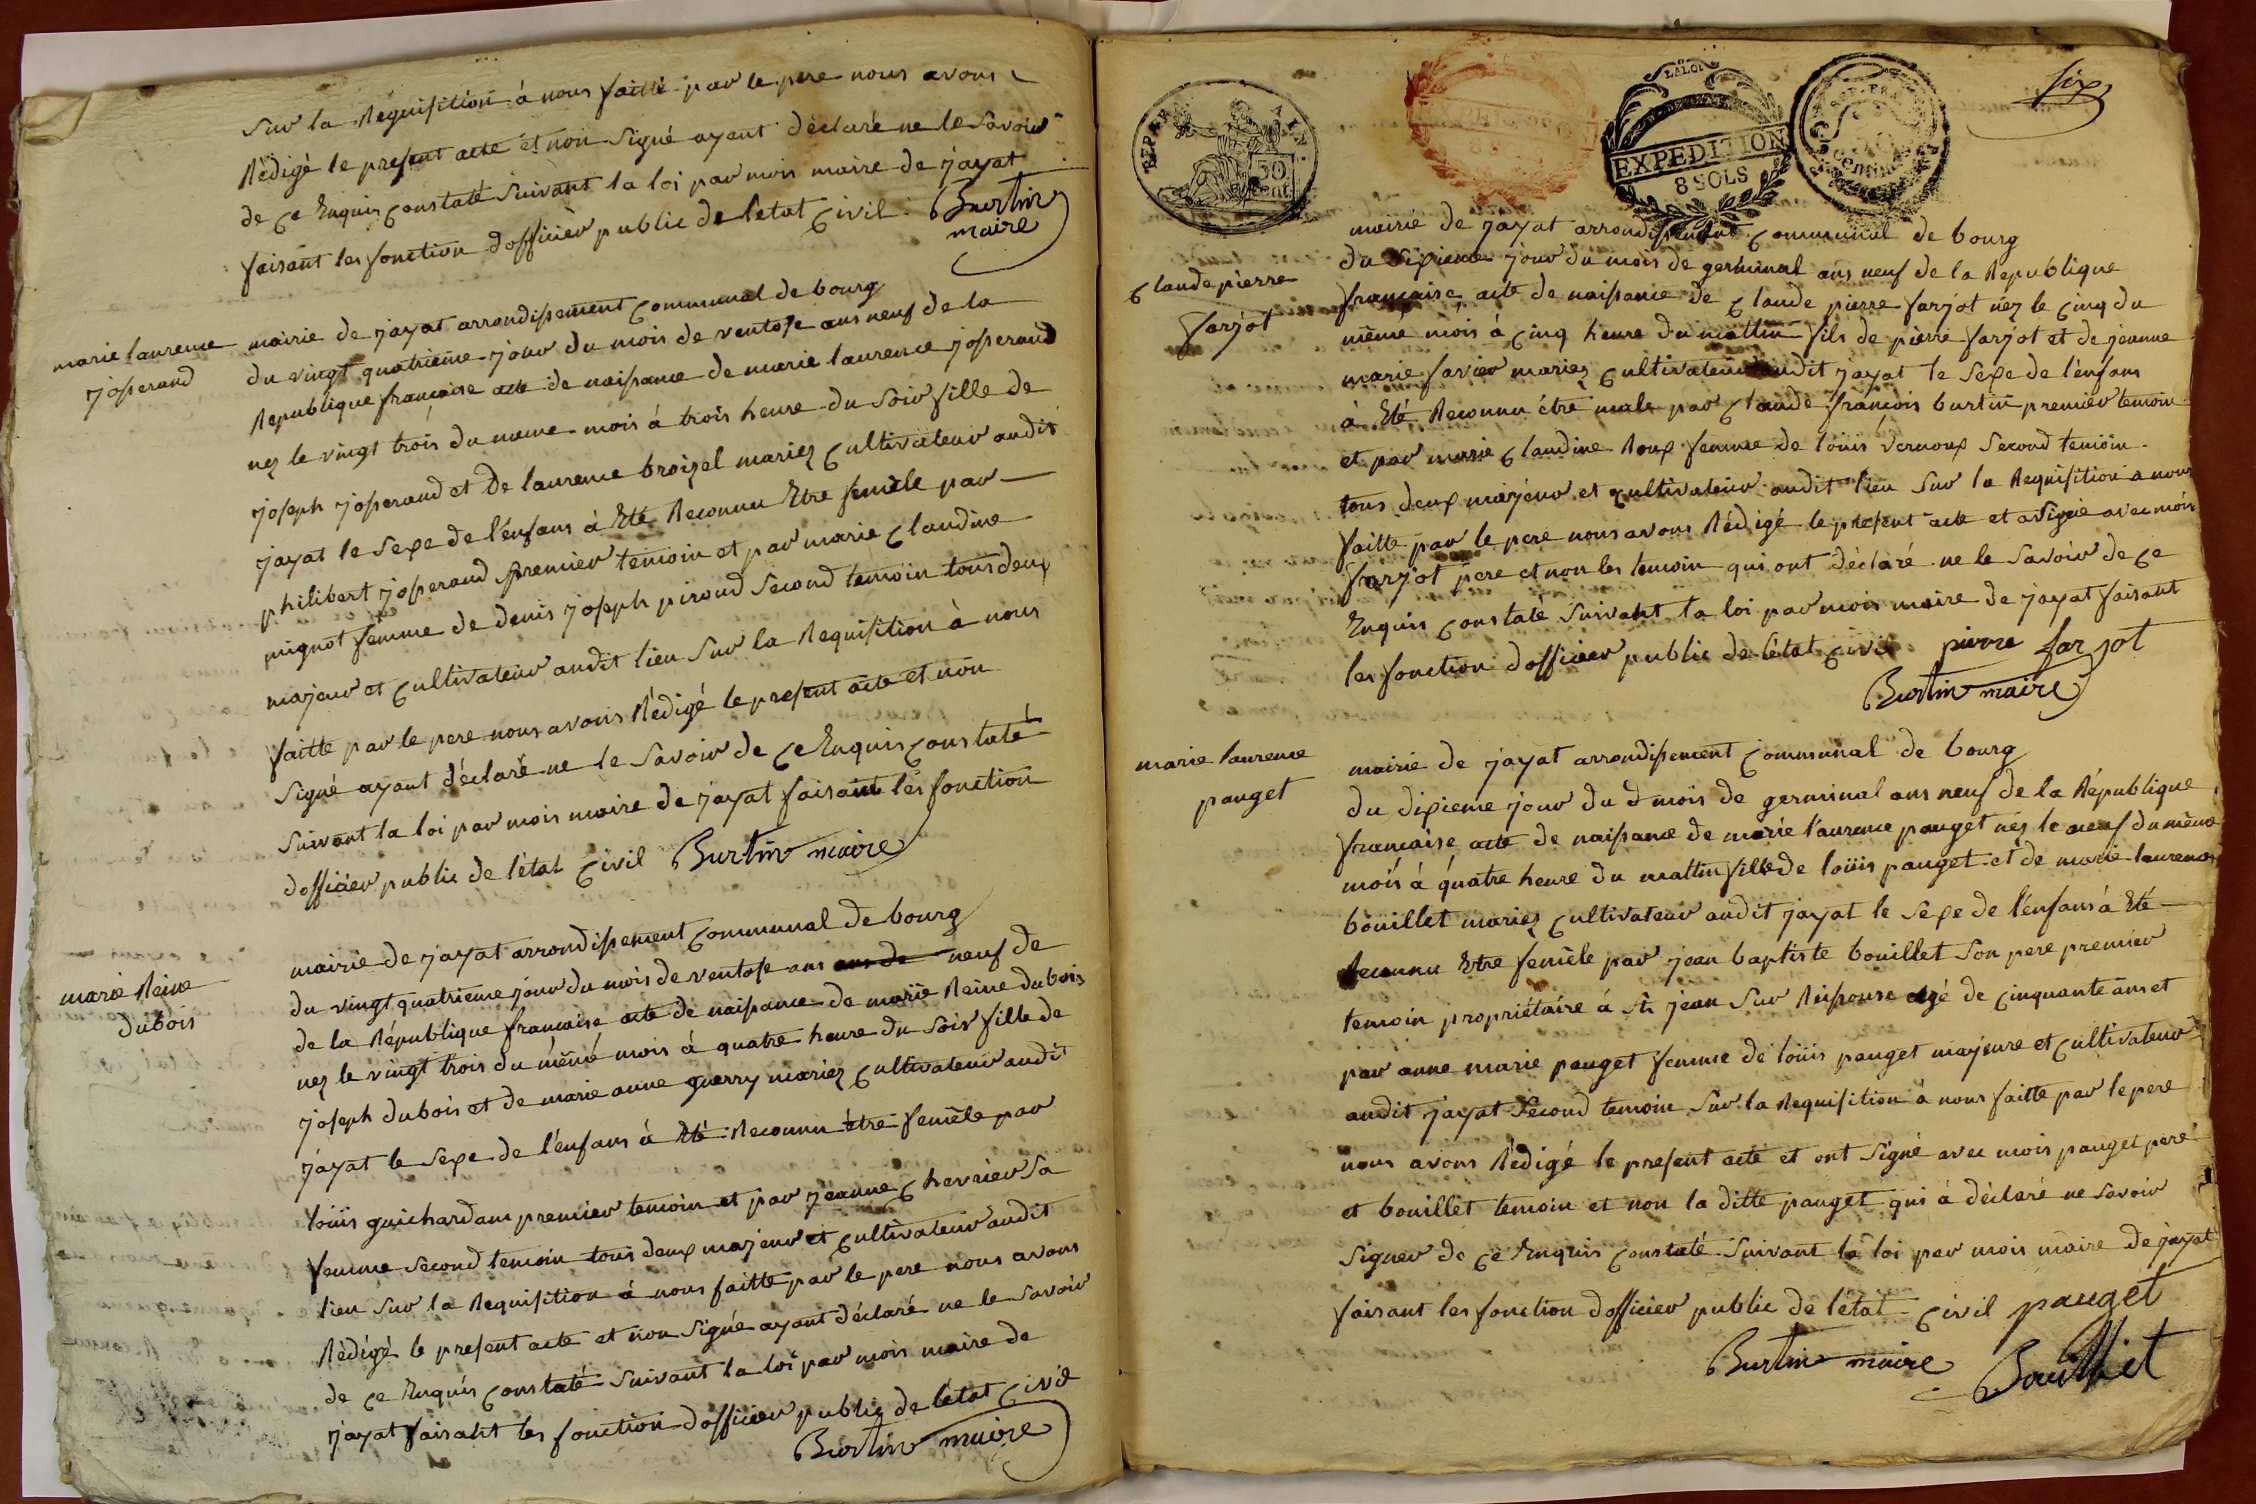 Sur la Réquisition à nous faitte par le pere nous avons
Rédigé le present acte et non Signé ayant déclaré ne le Savoir
de ce Enquis constaté Suivant la loi par mois maire de jayat
faisant les fonction dofficier public de l'etat civil Burtin
maire
marie laurence
josserand
mairie de jayat arrondissement communal de bourg
du vingt quatrieme jour du mois de ventose ans neuf de la
Republique francaise acte de naissance de marie laurence josserand
nez le vingt trois du meme mois à trois heure du Soir fille de
joseph josserand et De laurence broizel mariez cultivateur audit
jayat le Sexe de l'enfans à Eté Reconnu Etre femèle par
philibert josserand premier temoin et par marie claudine
mignot femme de denis joseph piroud Second temoin tous deux
majeur et cultivateur audit lieu Sur la Requisition à nous
faitte par le pere nous avons Rédigé le present acte et non
Signé ayant déclaré ne le Savoir de ce Enquis constaté
Suivant la loi par mois maire de jayat faisant les fonction
dofficier public de l'état civil Burtin maire
marie Reine
dubois
mairie de jayat arrondissement communal de bourg
du vingt quatrieme jour du mois de ventose ans ans de neuf de
de la République francaise acte de naissance de marie Reine dubois
nez le vingt trois du mémé mois à quatre heure du Soir fille de
joseph dubois et de marie anne guerry mariez cultivateur audit
jayat le Sexe de l'enfans à Eté Reconnu être femèle par
loüis guichardans premier temoin et par jeanne chevrier Sa
femme Second temoin tous deux majeur et cultivateur audit
lieu Sur la Requisition à nous faitte par le pere nous avons
Rédigé le present acte et non Signé ayant déclaré ne le Savoir
de ce Enquis constaté Suivant la loi par mois maire de
jayat faisant les fonction dofficier public de létat civil
Burtin maire
DEPAR AIN.
50
cent.
LA LOI
EXPEDITION
8 SOLS
REP. FRA
Six
claude pierre
farjot
mairie de jayat arrondissement communal de bourg
du Sixieme jour du mois de germinal ans neuf de la Republique
francaise acte de naissance de claude pierre farjot néz le cinq du
même mois à cinq heure du mattin fils de pierre farjot et de jeanne
marie favier mariez cultivateur audit jayat le Sexe de l'enfans
à Eté Reconnu étre male par claude françois burtin premier temoin
et par marie claudine Roux femme de loüis vernoux Second temoin
tous deux majeur et cultivateur audit lieu Sur la Requisition a nous
faitte par le pere nous avons Rédigé le present acte et a Signé avec mois
farjot pere et non les temoin qui ont déclaré ne le Savoir de ce
Enquis constaté Suivant la loi par mois maire de jayat faisant
les fonction dofficier public de l'état civil pierre farjot
Burtin maire
marie laurence
pauget
mairie de jayat arrondissement communal de bourg
du dixieme jour du d mois de germinal ans neuf de la République
francaise acte de naissance de marie laurence pauget nés le neuf du même
mois à quatre heure du mattin fille de loüis pauget et de marie laurence
bouillet mariez cultivateur audit jayat le Sexe de l'enfans à Eté
Reconnu Etre femèle par jean baptiste bouillet Son pere premier
temoin propriétaire à St jean Sur Reissouse agé de cinquante ans et
par anne marie pauget femme de loüis pauget majeure et cultivateur
audit jayat Second temoin Sur la Requisition à nous faitte par le pere
nous avons Rédigé le present acte et ont Signé avec mois pauget pere
et bouillet temoin et non la ditte pauget qui à déclaré ne Savoir
Signer de ce Enquis constaté Suivant la loi par mois maire de jayat
faisant les fonction dofficier public de létat civil pauget
Burtin maire Bouillet